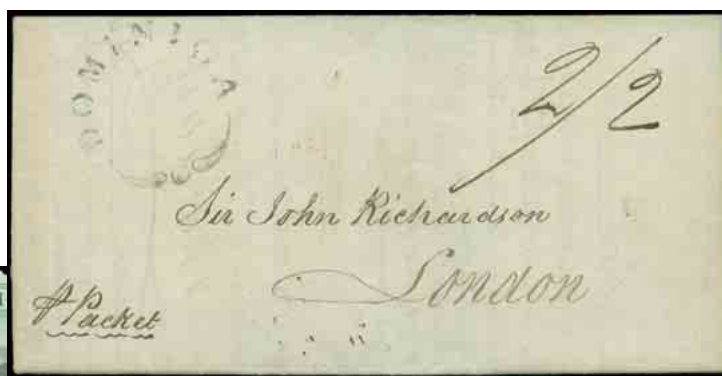 DOMINICA
2/2
Sir John Richardson
London
Packet